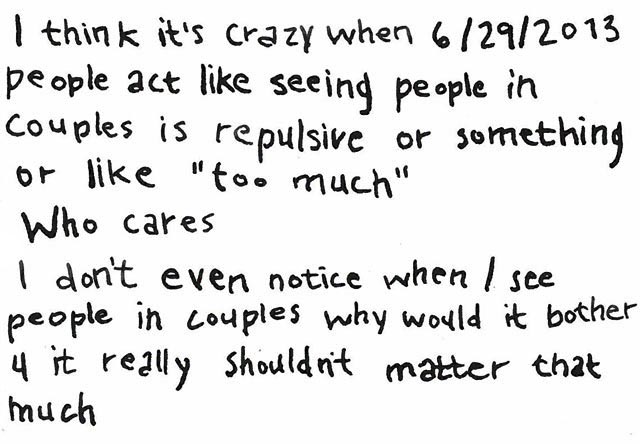 I think it's crazy when 6/29/2013
people act like seeing people in
couples is repulsive or something
or like "too much"
Who cares
I don't even notice when I see
people in couples why would it bother
u it really shouldn't matter that
much